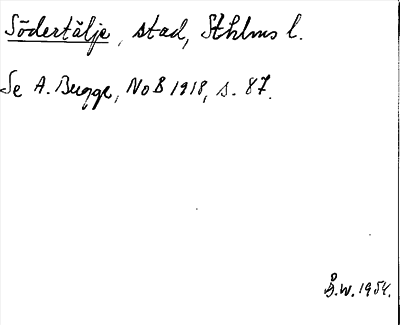 Södertälje, stad, Sthlms l.
Se A. Bugge, NoB 1918, s. 87.
Å.W. 1954.